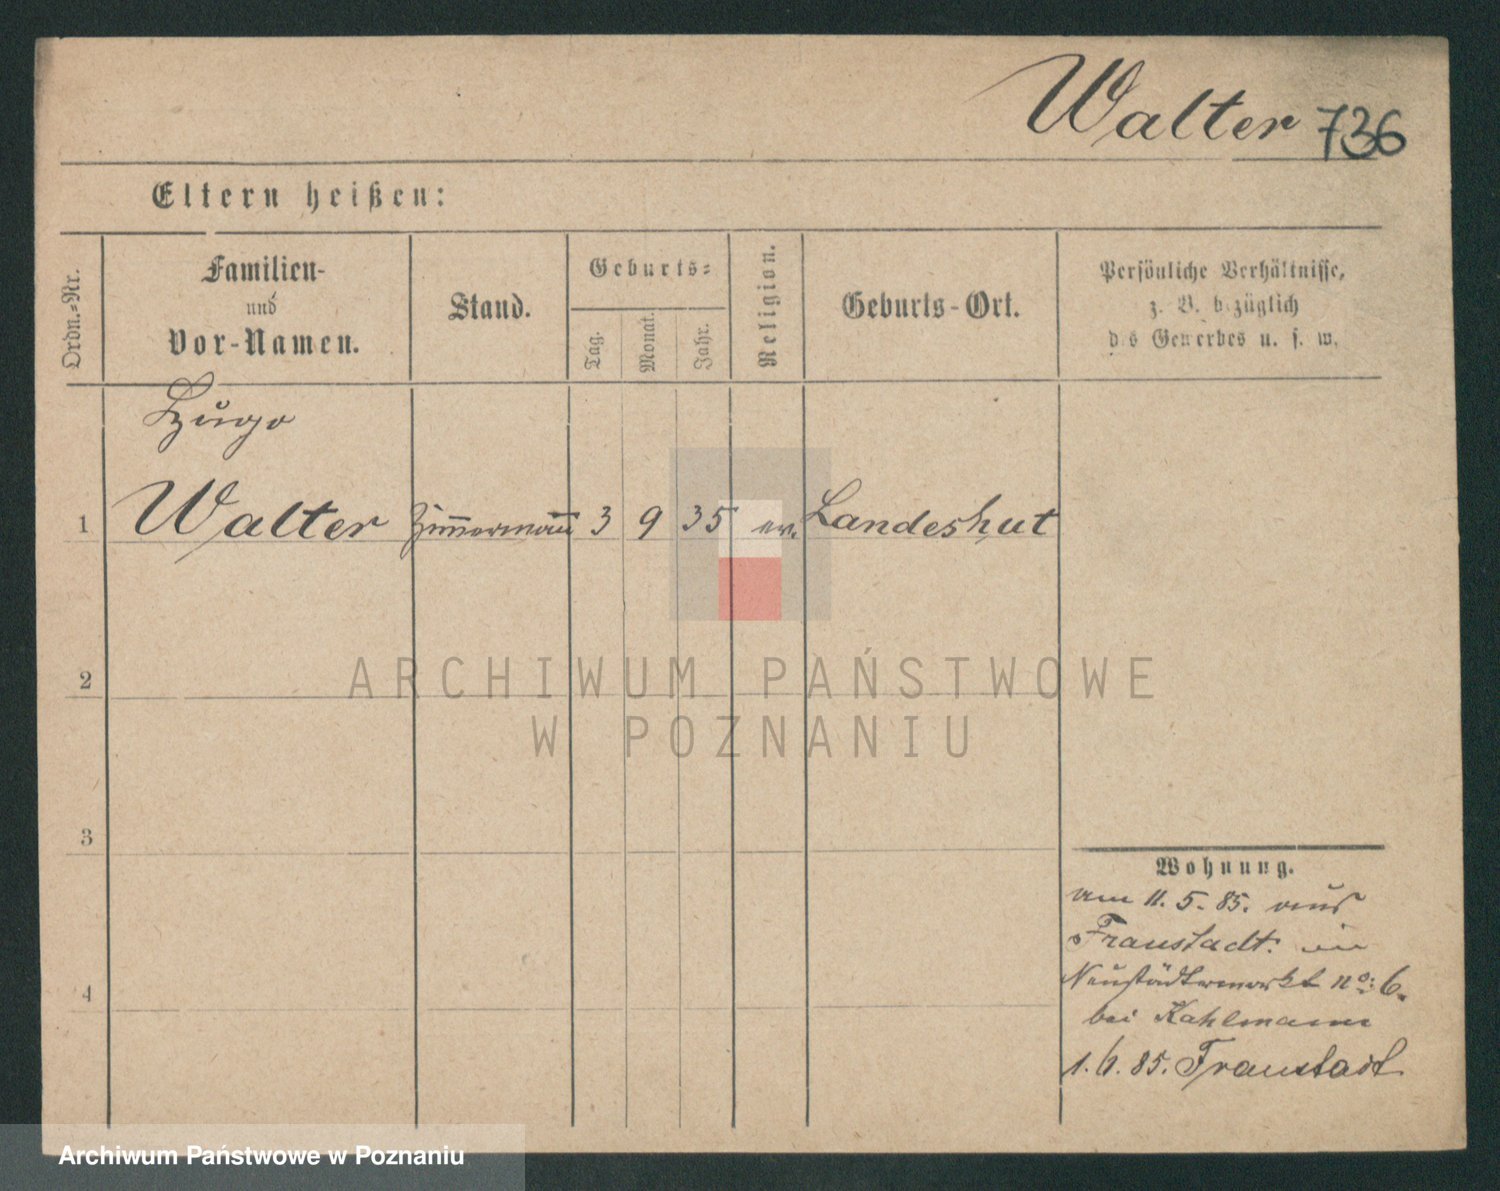 Walter 736
Eltern heißen:
Ordn.-Nr.
Familien-
und
Vor-Namen.
Stand.
Geburts-
Tag.
Monat.
Jahr.
Religion.
Geburts-Ort.
Persönliche Verhältnisse,
z. B. bezüglich
des Gewerbes u. s. w.
Hugo
1 Walter Zimmermann 3 9 35 ev. Landeshut
2
ARCHIWUM PAŃSTWOWE
W POZNANIU
3
Wohnung.
am 11. 5. 85. aus
Fraustadt. in
4
Neustädtermarkt no: 6.
bei Kahlmann
1. 6. 85. Fraustadt
Archiwum Państwowe w Poznaniu